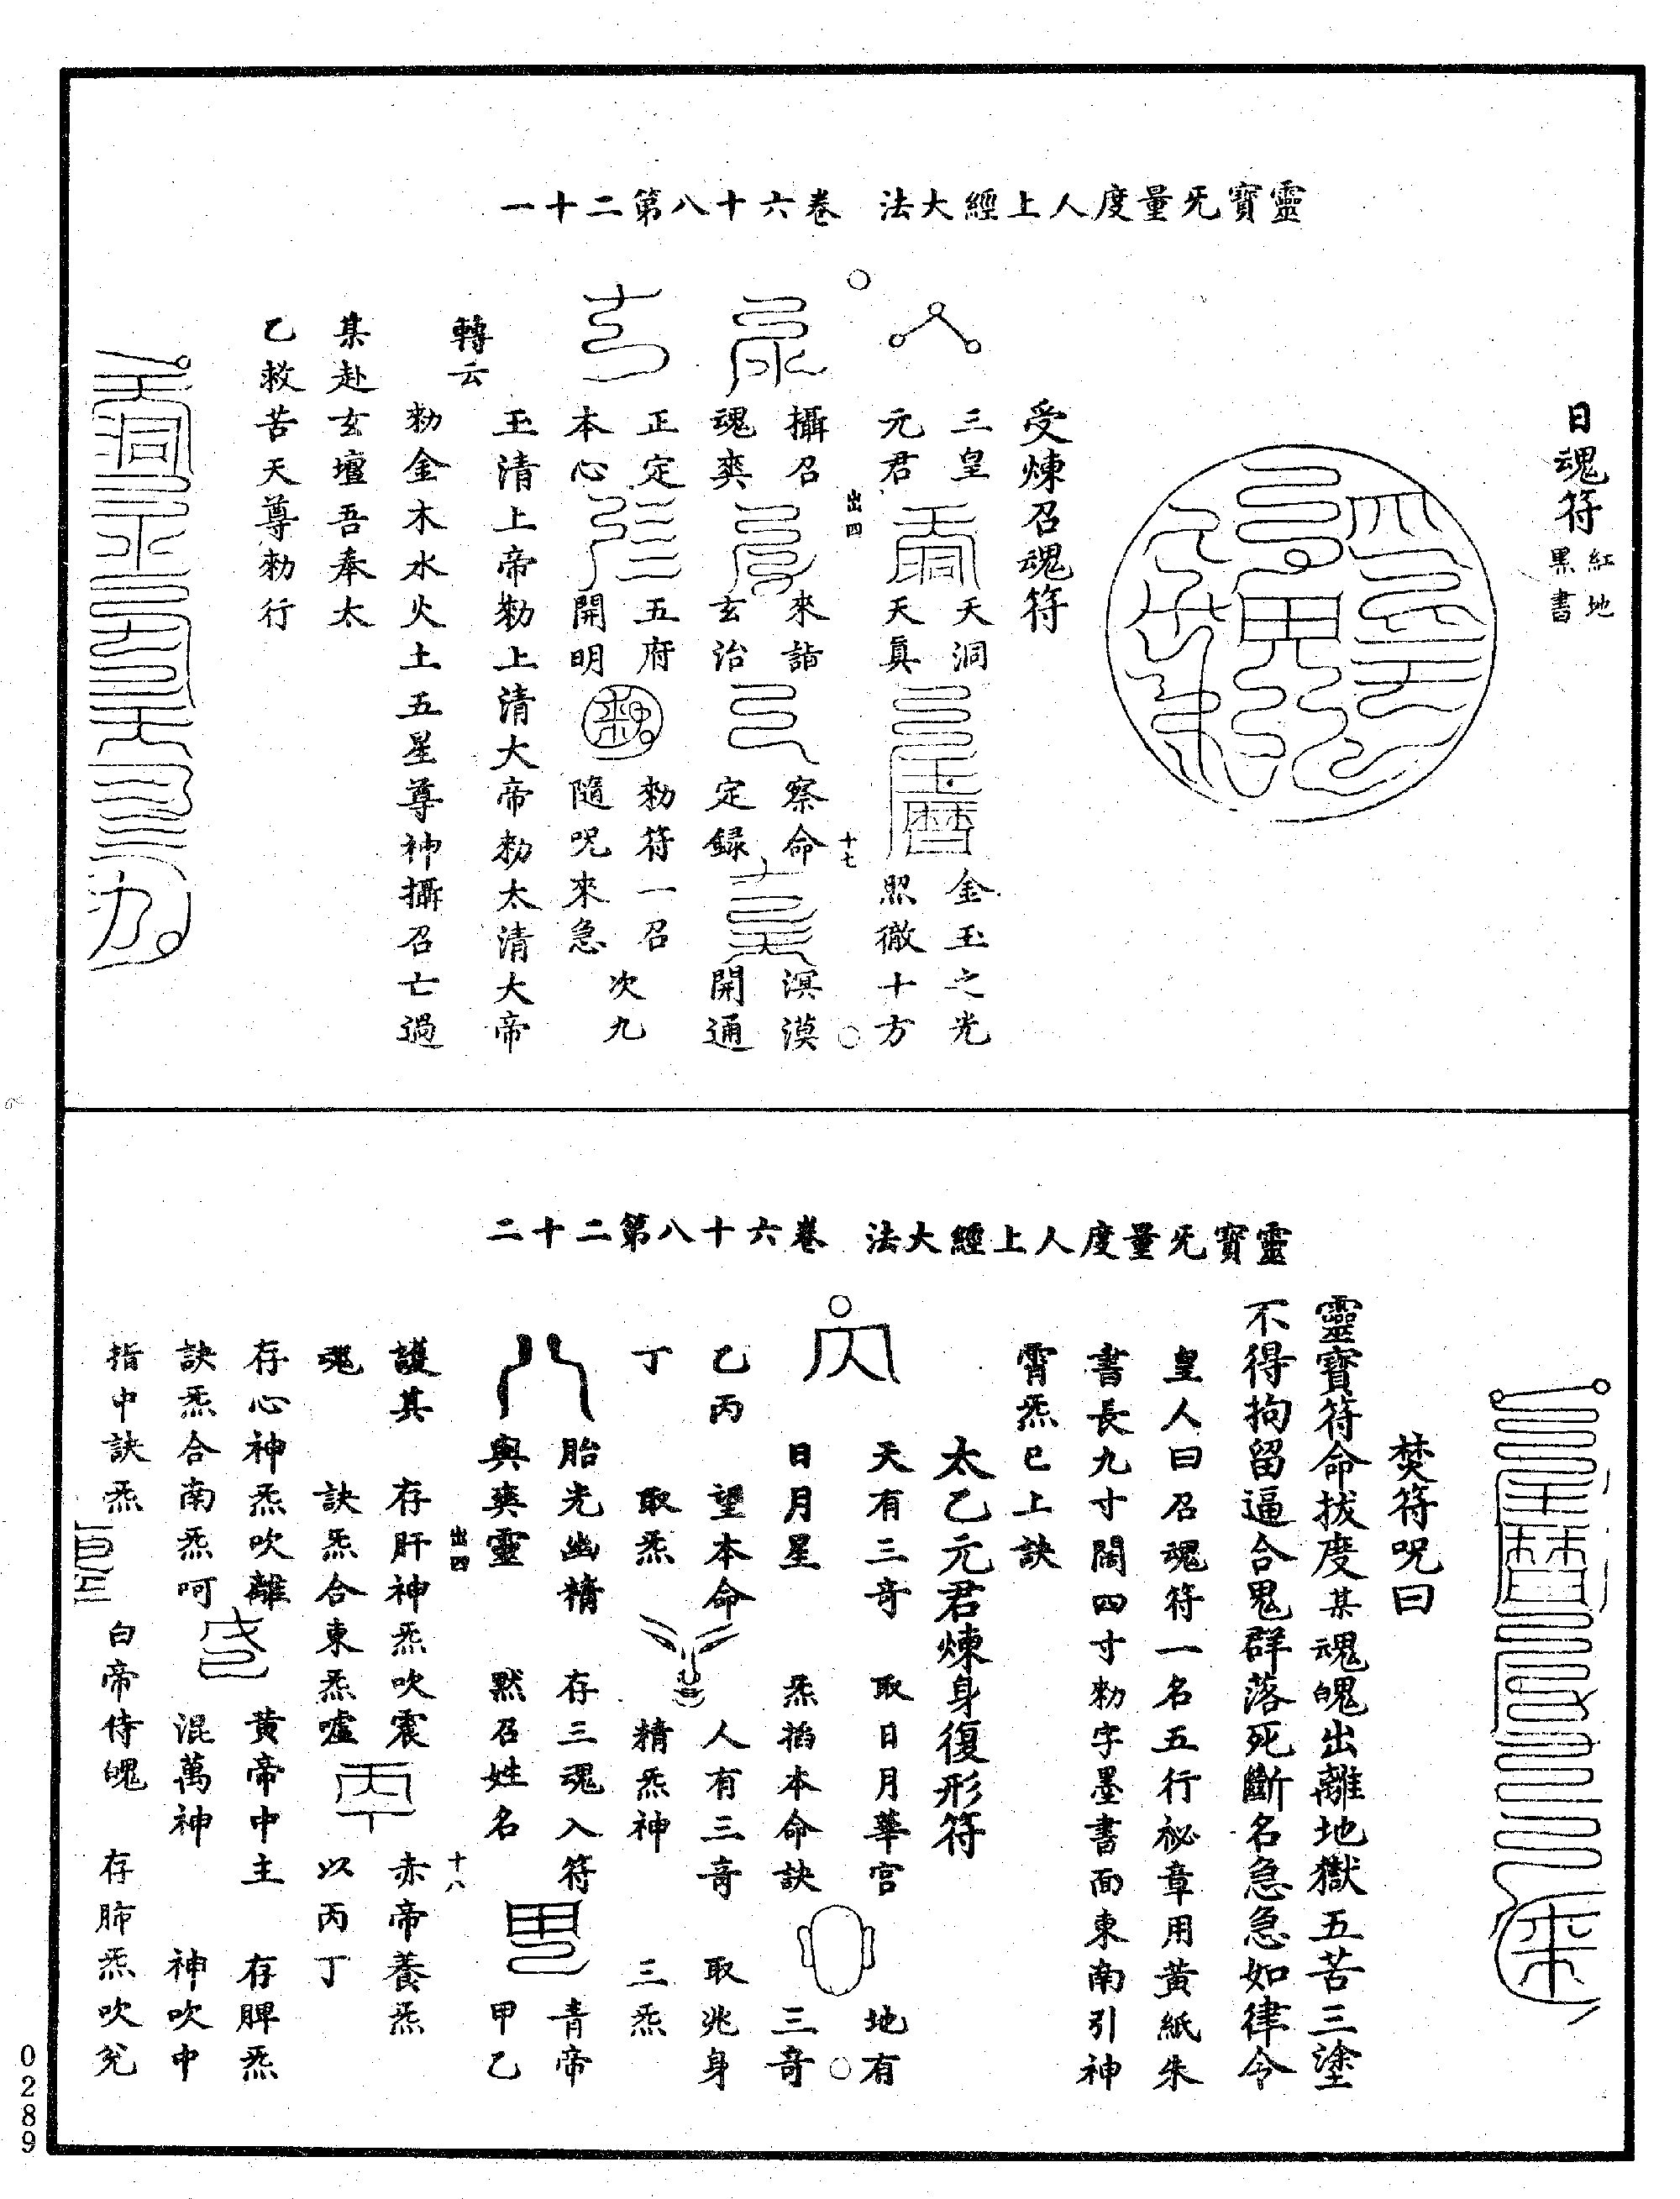 靈寶无量度人上經大法 卷六十八第二十一
日魂符 紅地
黑書
受煉召魂符
三皇 天洞 金玉之光
元君 天真 照徹十方
出四 十七
攝召 來詣 察命 溟漠
魂爽 玄治 定録 開通
正定 五府 勑符一召 次九
本心 開明 隨呪來急
玉清上帝勑上清大帝勑太清大帝
轉云
勑金木水火土五星尊神攝召亡過
某赴玄壇吾奉太
乙救苦天尊勑行
靈寶无量度人上經大法 卷六十八第二十二
焚符呪曰
靈寶符命拔度某魂魄出離地獄五苦三塗
不得拘留逼合鬼群落死斷名急急如律令
皇人曰召魂符一名五行祕章用黃紙朱
書長九寸闊四寸勑字墨書面東南引神
霄炁已上訣
太乙元君煉身復形符
天有三奇 取日月華宮 地有
日月星 炁掐本命訣 三奇
乙丙 望本命 人有三奇 取兆身
丁 取炁 精炁神 三炁
胎光幽精 存三魂入符 青帝
與爽靈 默召姓名 甲乙
出四 十八
護其 存肝神炁吹震 赤帝養炁
魂 訣炁合東炁噓 以丙丁
存心神炁吹離 黃帝中主 存脾炁
訣炁合南炁呵 混萬神 神吹中
指中訣炁 白帝侍魄 存肺炁吹兌
0289